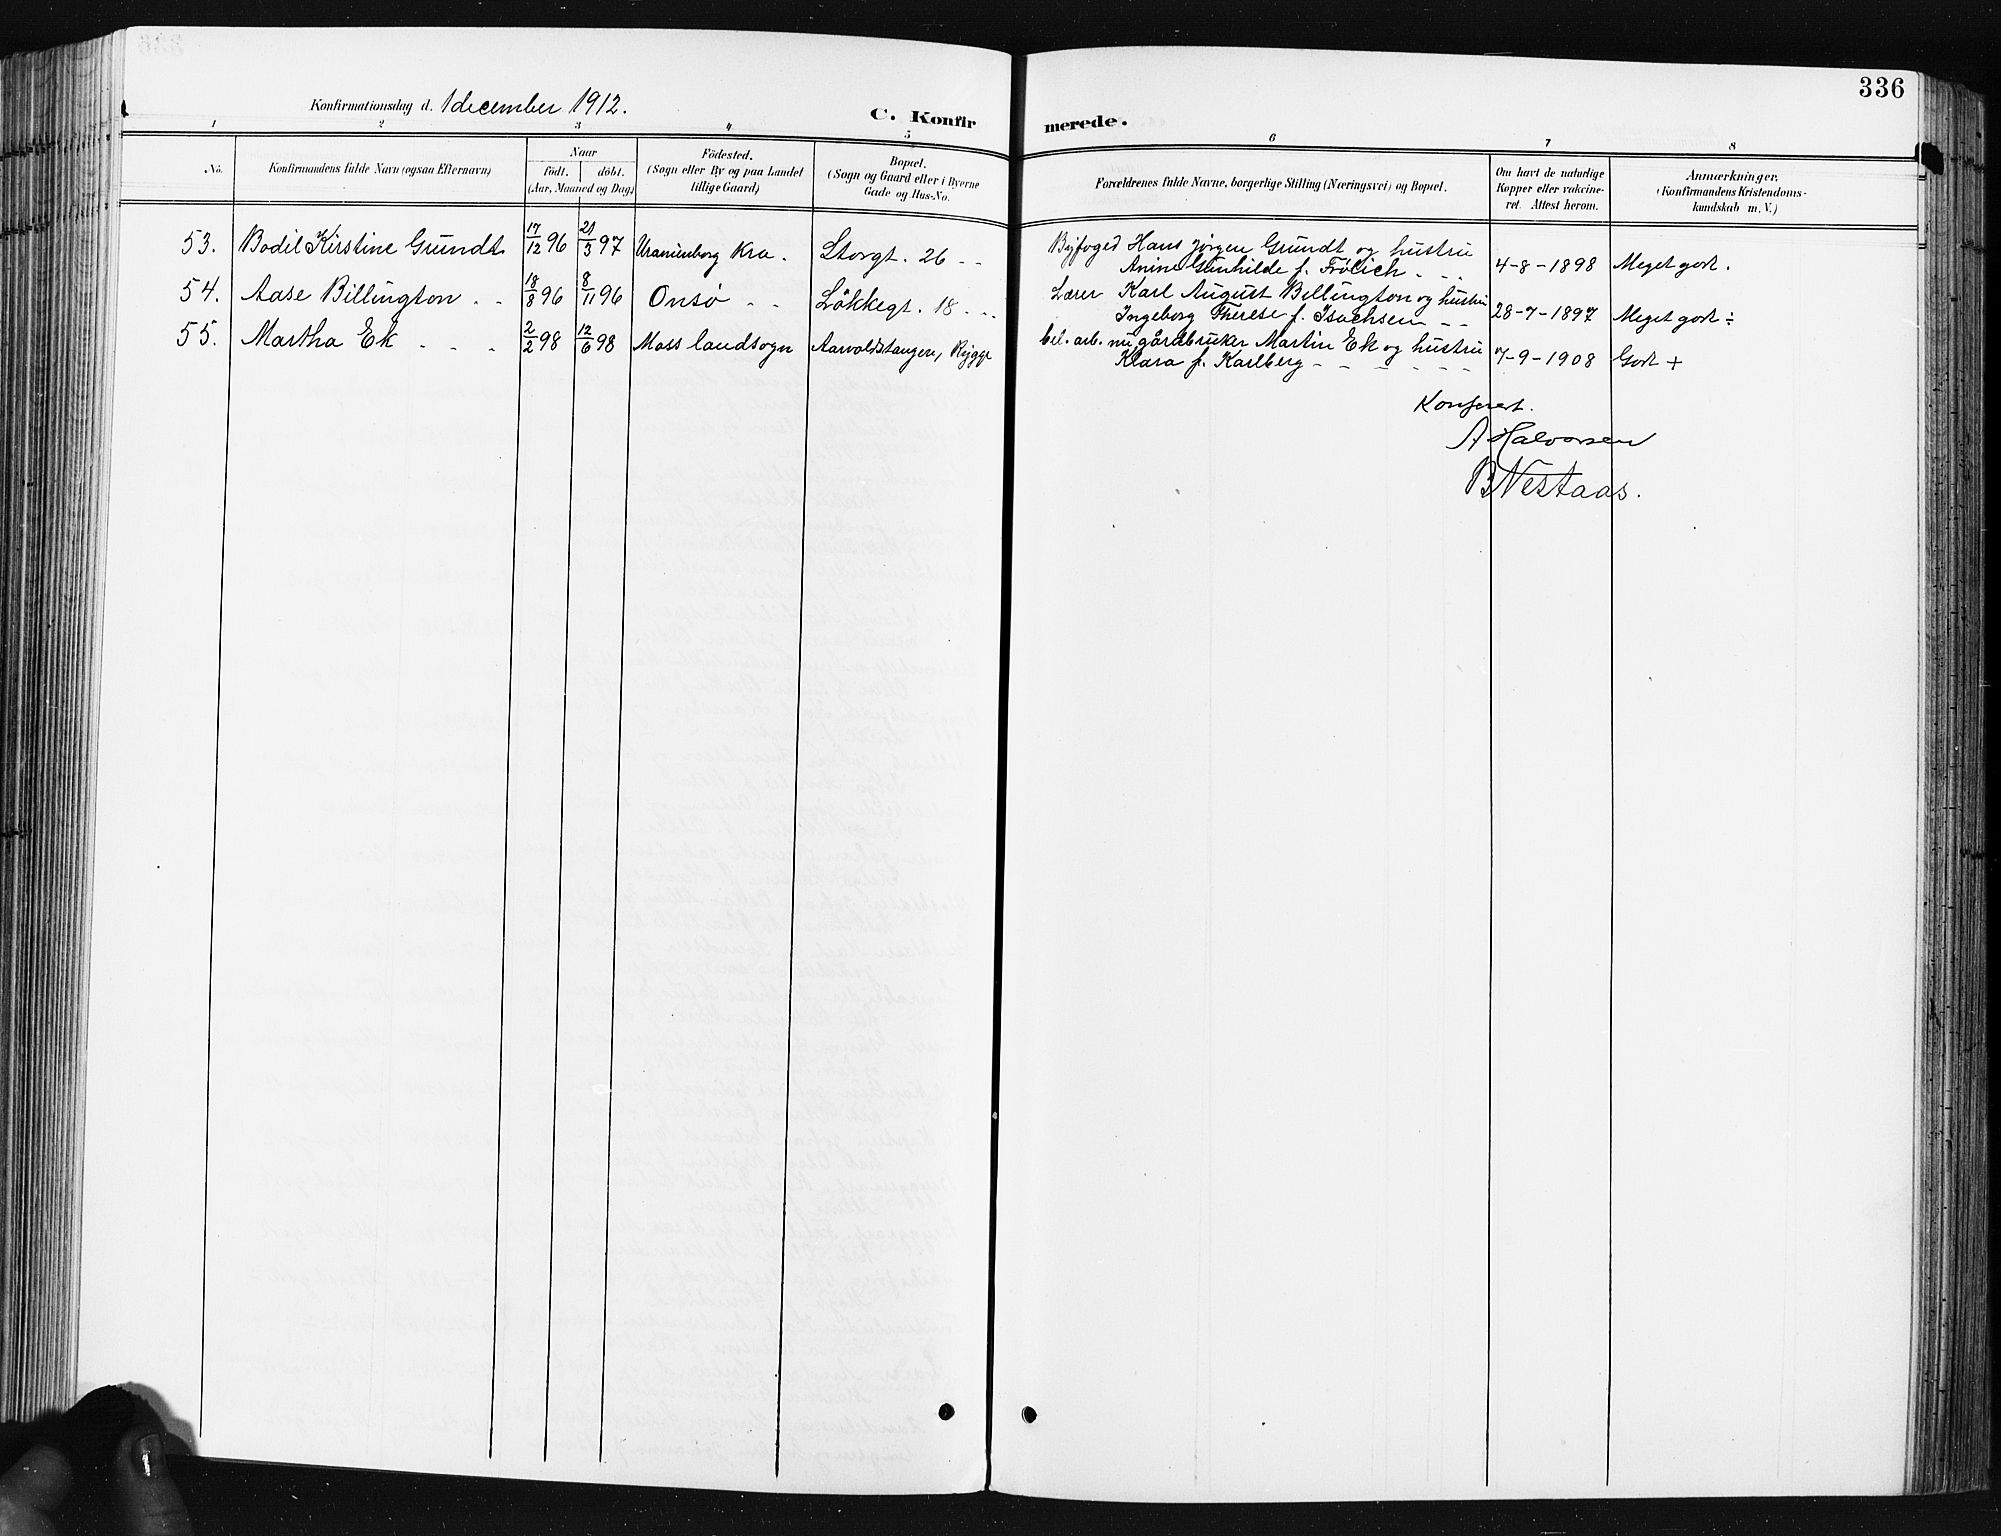 336
Konfirmationsdag d. 1 december 1912.
C. Konfirmerede.
1 2 3 4 5 6 7 8
No.
Konfirmandens fulde Navn (ogsaa Efternavn)
Naar
födt. döbt.
(Aar, Maaned og Dag)
Födested.
(Sogn eller By og paa Landet
tillige Gaard)
Bopæl.
(Sogn og Gaard eller i Byerne
Gade og Hus-No.
Forældrenes fulde Navne, borgerlige Stilling (Næringsvei) og Bopæl.
Om havt de naturlige
Kopper eller vakcine-
ret. Attest herom.
Anmærkninger.
(Konfirmandens Kristendoms-
kundskab m. V.)
53. Bodil Kirstine Grundt 17/12 96 21/3 97 Uranienborg Kra. Storgt. 26 - - Byfoged Hans Jörgen Grundt og hustru
Anine Gunhilde f. Frölich - - - 4-8-1898 Meget godt.
54. Aase Billington - - 18/8 96 8/11 96 Onsö - - Lökkegt. 18 - - Lærer Karl August Billington og hustru
Ingeborg Therese f. Isachsen - - 28-7-1897 Meget godt ÷
55. Martha Ek - - - 2/2 98 12/6 98 Moss landsogn Aarvoldstangen, Rygge bel. arb. nu gårdbruker Martin Ek og hustru
Klara f. Karlberg - - - - - - 7-9-1908 Godt +
Konferert.
A Halvorsen
B Nestaas.